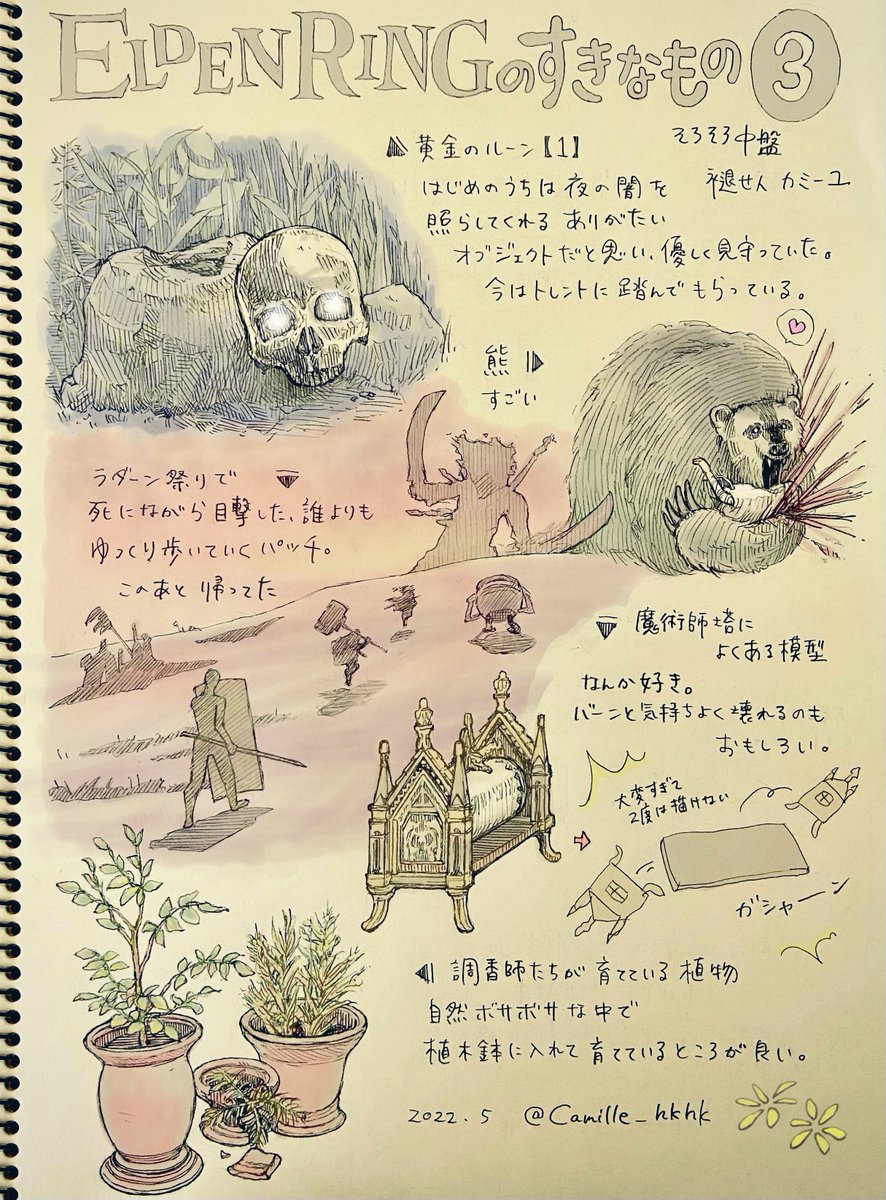 ELDEN RINGのすきなもの ③
そろそろ中盤
褪せ人 カミーユ
黄金のルーン【1】
はじめのうちは夜の闇を
照らしてくれる ありがたい
オブジェクトだと思い、優しく見守っていた。
今はトレントに踏んでもらっている。
熊
すごい
ラダーン祭りで
死にながら目撃した、誰よりも
ゆっくり歩いていくパッチ。
このあと 帰ってた
魔術師塔に
よくある模型
なんか好き。
バーンと気持ちよく壊れるのも
おもしろい。
大変すぎて
2度は描けない
ガシャーン
調香師たちが育てている植物
自然ボサボサな中で
植木鉢に入れて育てているところが良い。
2022.5 @Camille_hkhk